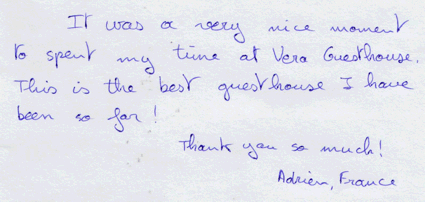 It was a very nice moment
to spent my time at Vera Guesthouse.
This is the best guesthouse I have
been so far!
Thank you so much!
Adrien, France